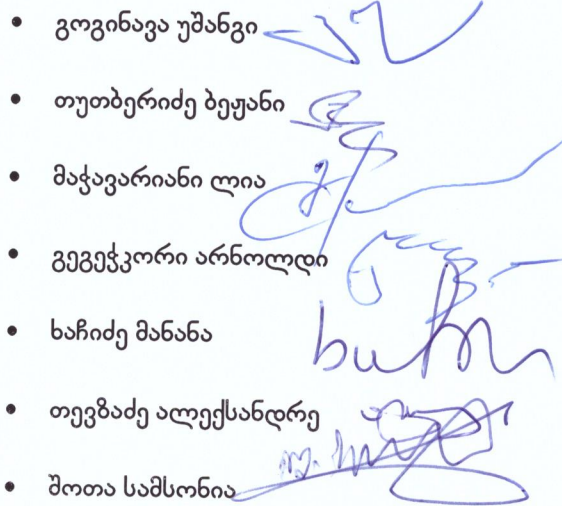 • გოგინავა უშანგი
• თუთბერიძე ბეჟანი
• მაჭავარიანი ლია
• გეგეჭკორი არნოლდი
• ხაჩიძე მანანა
• თევზაძე ალექსანდრე
• შოთა სამსონია